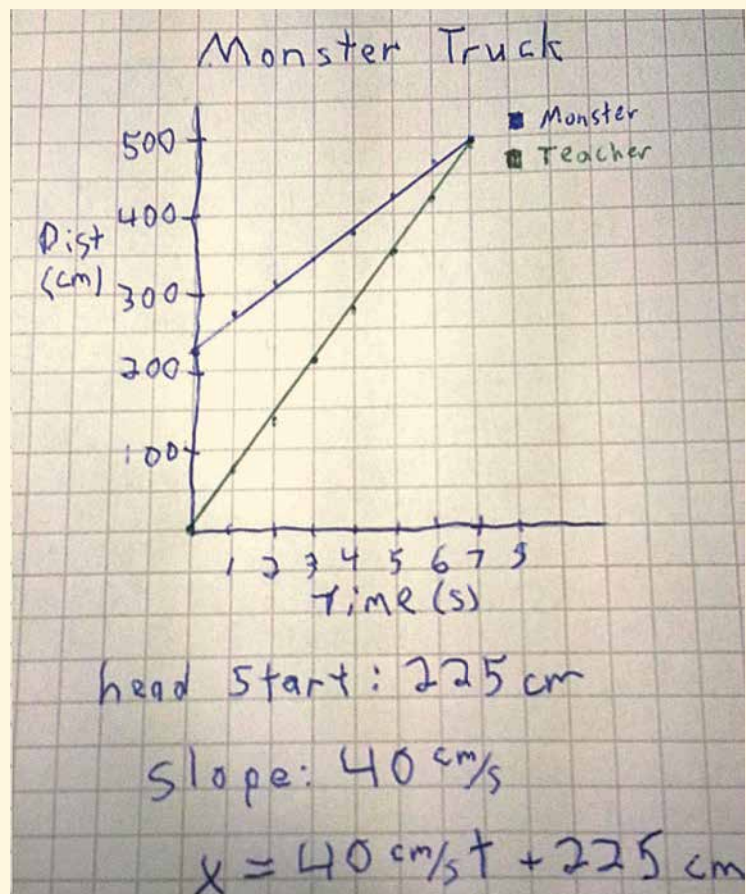 Monster Truck
Monster
Teacher
500
400
Dist
(cm)
300
200
100
1 2 3 4 5 6 7 8
Time (s)
head start: 225 cm
slope: 40 cm/s
x = 40 cm/s t + 225 cm